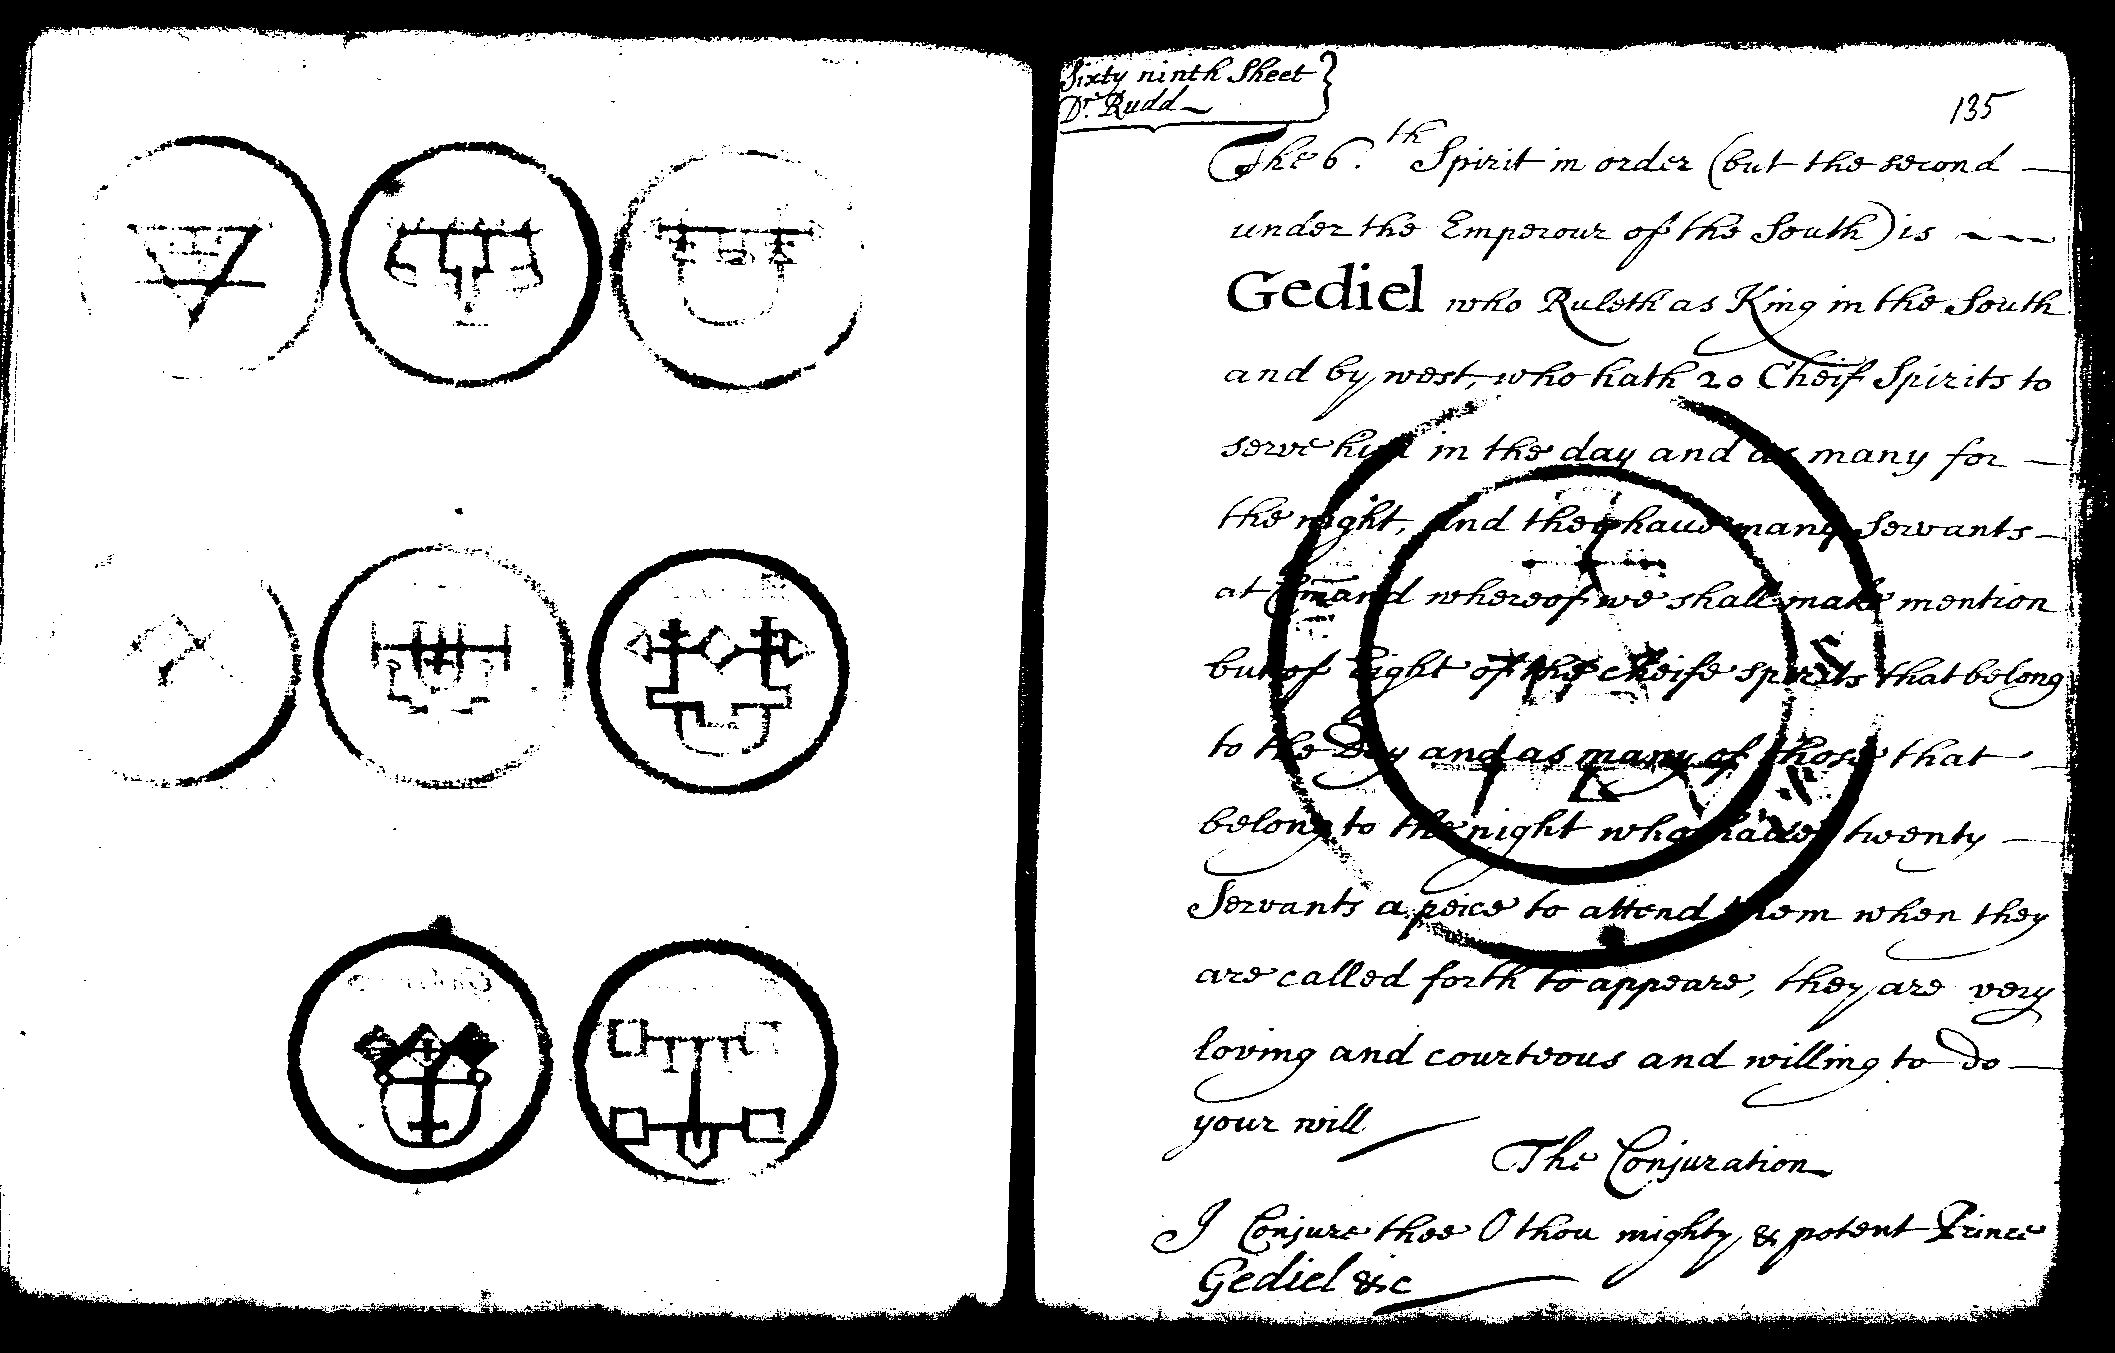 Sixty ninth Sheet
Dr. Rudd
135
The 6.th Spirit in order (but the second
under the Emperour of the South) is
Gediel who Ruleth as King in the South
and by west, who hath 20 Cheif Spirits to
serve him in the day and as many for
the night, and they haue many Servants
at Comand whereof we shall make mention
but of Eight of the cheife spirits that belong
to the Day and as many of those that
belong to the night who haue twenty
Servants a peice to attend them when they
are called forth to appeare, they are very
loving and courteous and willing to do
your will
The Conjuration
I Conjure thee O thou mighty & potent Prince
Gediel &c